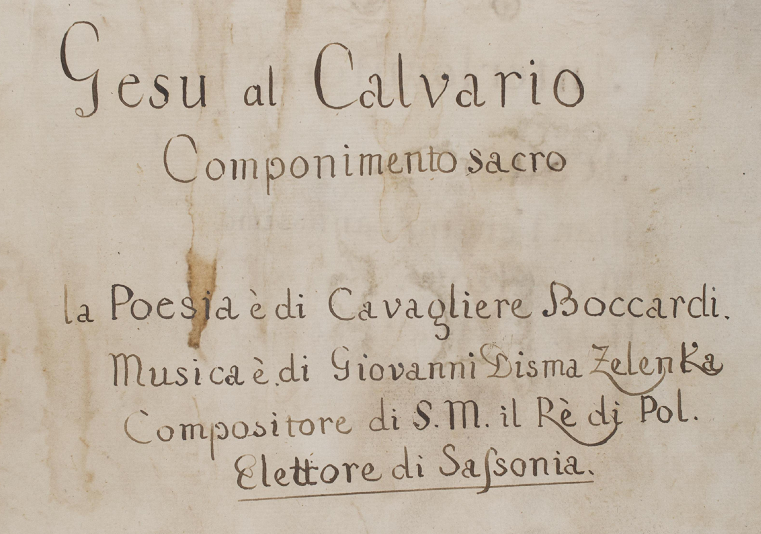 Gesu al Calvario
Componimento sacro
la Poesia è di Cavagliere Boccardi.
Musica è di Giovanni Disma Zelenka
Compositore di S.M. il Rè di Pol.
Elettore di Saſsonia.